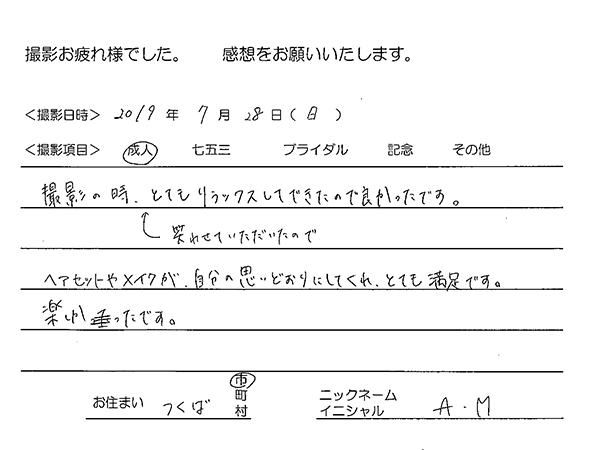 撮影お疲れ様でした。 感想をお願いいたします。
<撮影日時> 2019 年 7 月 28 日 ( 日 )
<撮影項目> 成人 七五三 ブライダル 記念 その他
撮影の時、とてもリラックスしてできたので良かったです。
笑わせていただいたので
ヘアセットやメイクが、自分の思いどおりにしてくれ、とても満足です。
楽しかったです。
お住まい つくば 市 町 村
ニックネーム イニシャル A.M